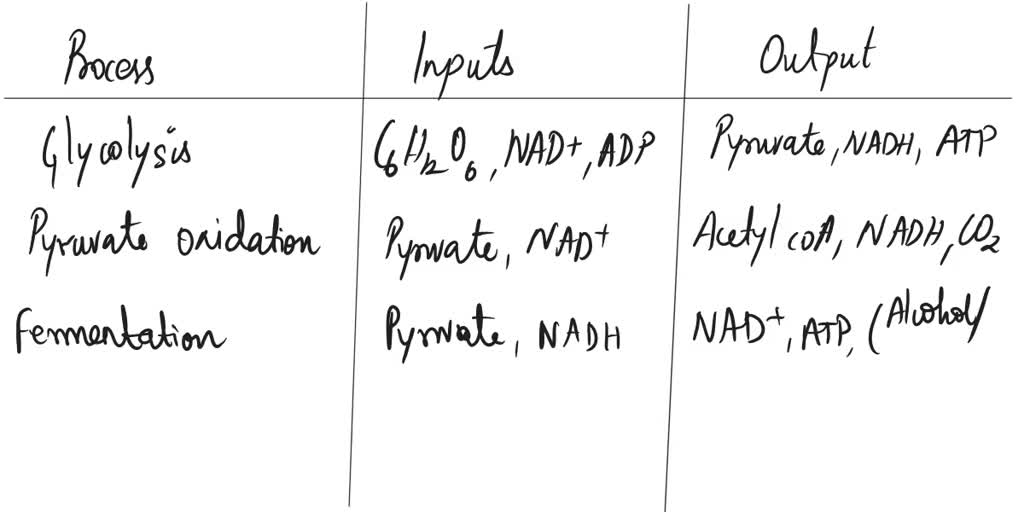 Process Inputs Output
Glycolysis C6H12O6, NAD+, ADP Pyruvate, NADH, ATP
Pyruvate oxidation Pyruvate, NAD+ Acetyl coA, NADH, CO2
Fermentation Pyruvate, NADH NAD+, ATP, (Alcohol/